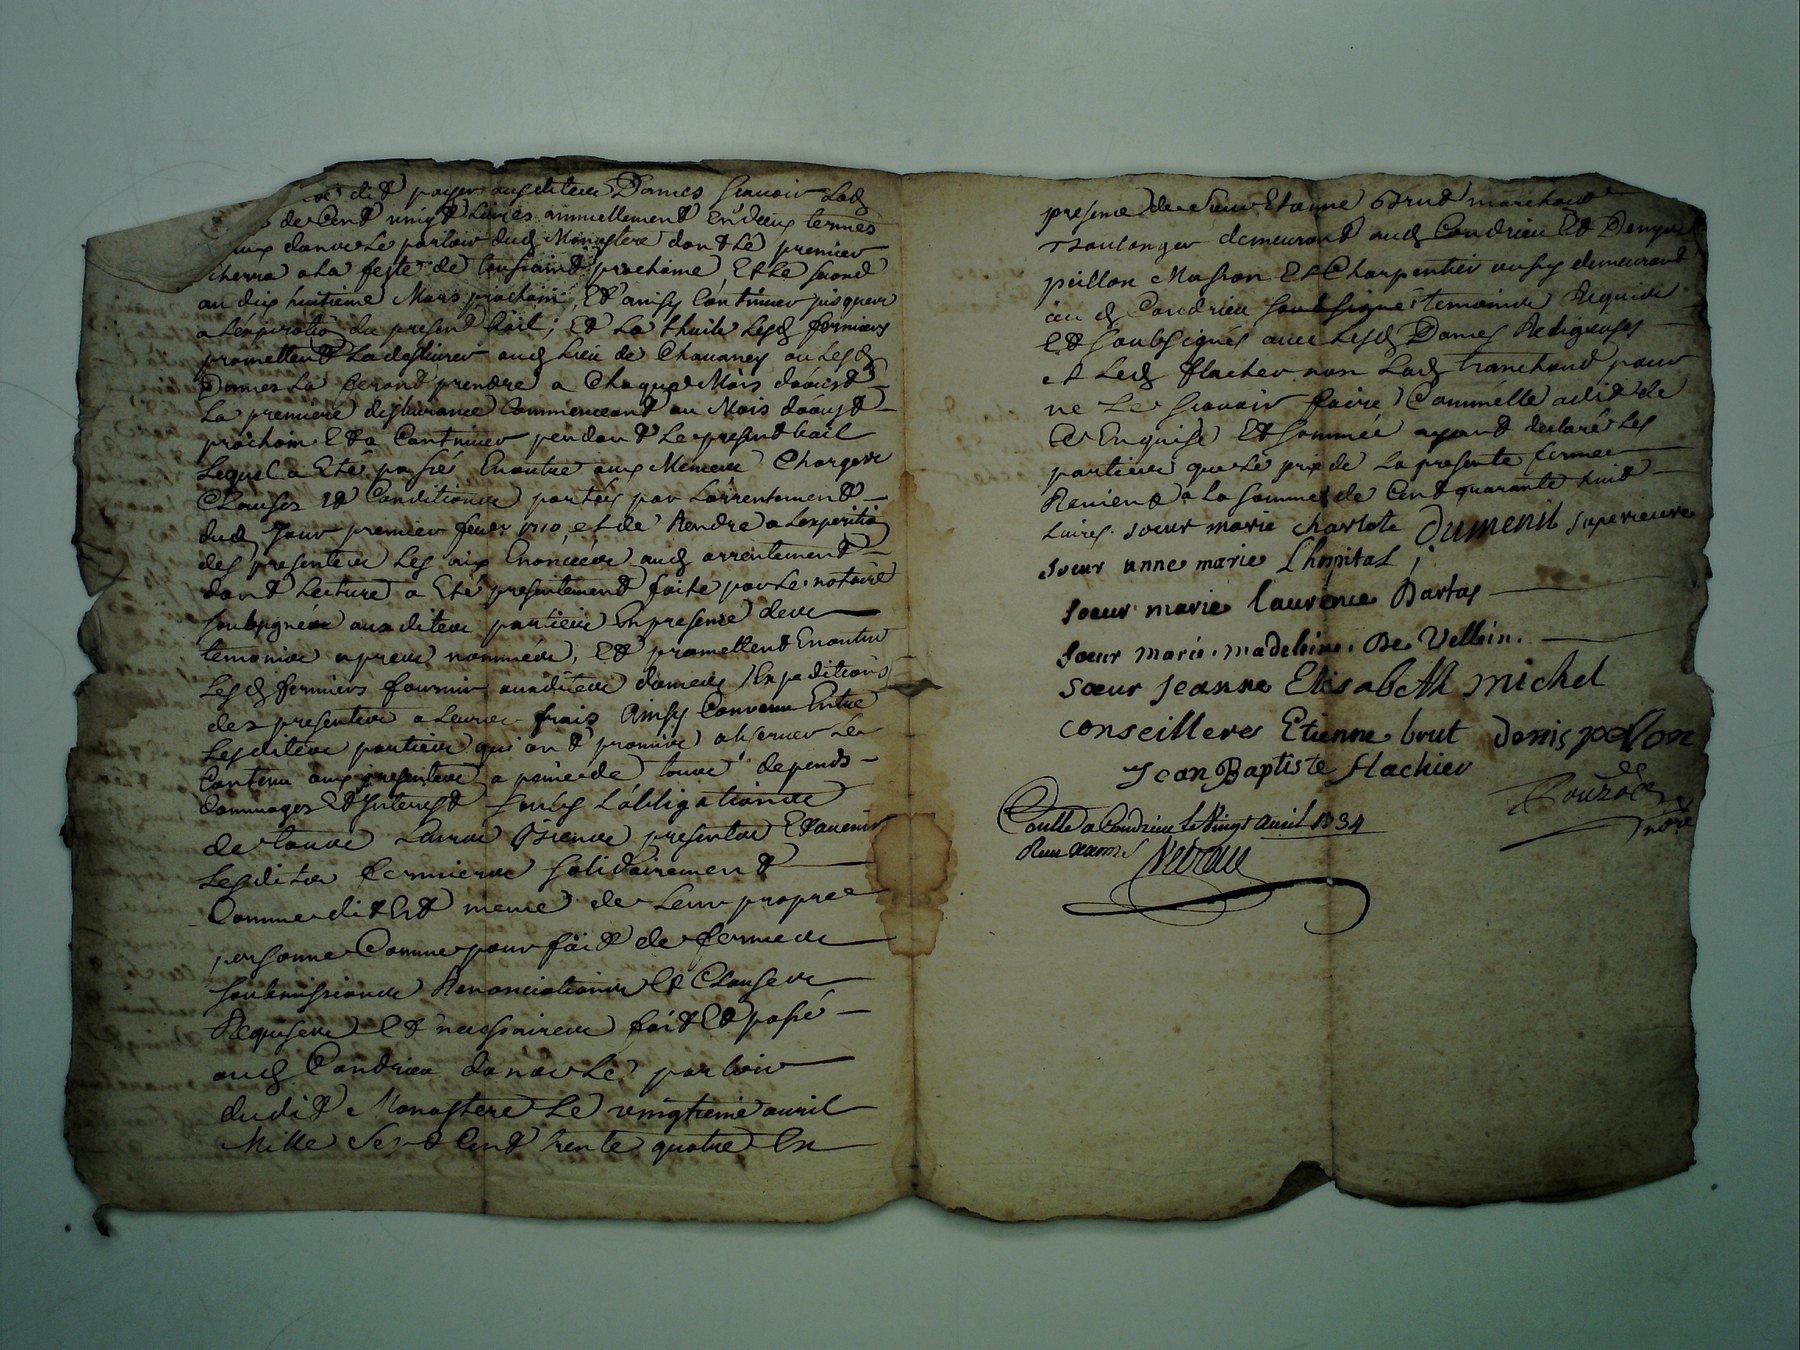 dit payer ausdites Dames sçavoir lad
de Cent vingt Livres annuellement En deux termes
dans le parloir dud Monastere dont Le premier
a la feste de toussaint prochaine Et Le second
au dix huitieme Mars prochain, Et ainsy Continuer jusques
a L'expiration du present bail; Et La Lhuile Lesd fermiers
promettent La deslivrer aud Lieu de Chavaney ou Lesd
Dames La feront prendre a Chaque Mois d'aoust
La premiere deslivrance Commenceant au Mois d'aoust
prochain Et a Continuer pendant Le present bail
Lequel a Eté passé Enoutre aux Memes Charges
Clauses Et Conditions portés par L'arrentement
dud jour premier fevr 1710, et de Rendre a Lexpiration
des presentes Les Enoncées aud arrentement
dont Lecture a Eté presentement faite par Le notaire
soubsigné ausdites parties En presence des
temoins apres nommés, Et promettent Enoutre
Lesd fermiers fournir ausdites dames Expeditions
des presentes a Leurs frais Ainsy Convenu Entre
Lesdites parties qui ont promis observer Le
Contenu aux presentes a peine de tous depends
Dommages Et Interest soubs L'obligation
de tous Leurs Biens presents Et avenir
Lesdits fermiers solidairement
Comme dit Est meme de Leur propre
personne Comme pour fait de ferme
soubmissions Renonciations Et Clauses
Requises Et necessaires fait Et passé
aud Condrieu dans Le parloir
dudit Monastere Le vingtieme avril
Mille Sept Cent trente quatre En
presence de Sieur Etienne Brut marchand
Boulanger demeurant aud Condrieu Et Denys
peillon Masson Et Charpentier aussy demeurant
au d Condrieu soubsigné temoins Requis
Et soubsignés avec Lesd Dames Religieuses
et Led flacher non Lad tranchand pour
ne Le sçavoir faire Comme Elle a dit de
Ce Enquise Et sommée ayant declaré Les
parties que Le prix de La presente ferme
Revient a La somme de Cent quarante huit
Livres. soeur marie charlote Dumenil superieure
soeur anne marie Lhopital;
soeur marie laurence Bartas
soeur marie. madeleine. De Vellein.
sœur jeanne Elisabeth michel
conseilleres Etienne brut denis pellon
jean Baptiste flachier
Coulle a Condrieu le Vingt avril 1734